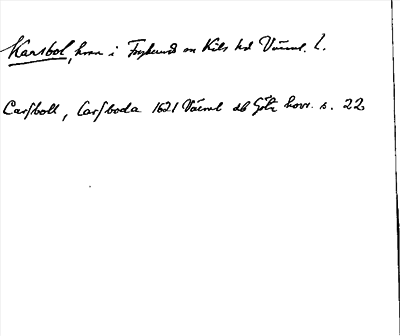 Karsbol, hmn i Fryksände sn Kils hd Värml. l.
Carſboll, Carſboda 1621 Värml db Götr hovr. s. 22